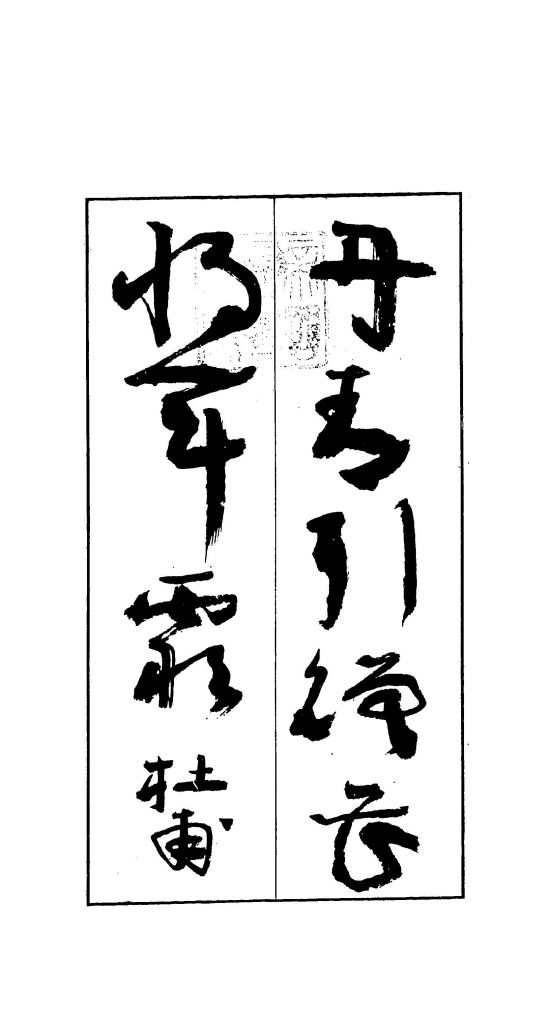 丹青引贈曹
將軍霸 杜甫